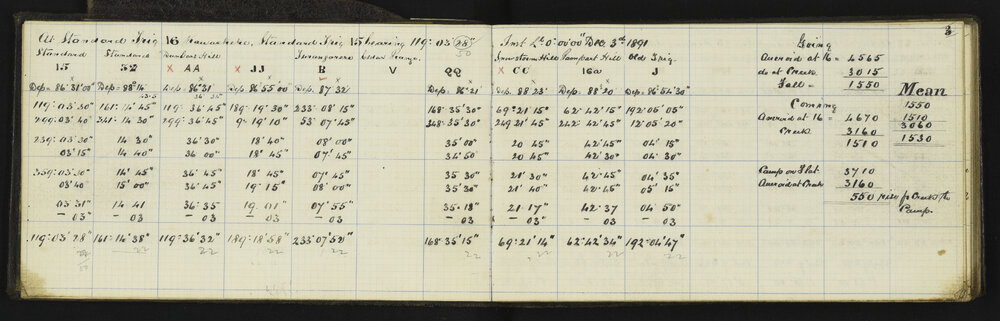 At Standard Trig 16 Standard Trig 15 bearing 119°·03'·28" Inst L° 0·00'00" Dec 3rd 1891
50
3
Standard Standard Dunbent Hill Turangarere Old Trig
15 52 x AA x JJ B V QQ x CC 16a J
Dep= 86°31'00" Dep= 88°14' Dep. 86°31 Dep. 86 55 00 Dep. 87 32 Dep= 86°21' Dep. 88 23' Dep. 88°20 Dep= 86°54'30"
119°·03'·30" 161°·14'·45" 119°·36'·45" 189°·19'·30" 233°·08'·15" 168°·35'·30" 69°·21'·15" 62°·42'·15" 192°·05'·05"
299·03'·40" 341·14'·30" 299·36'·45" 9·19'·10" 53·07'·45" 348·35'·30" 249·21'·45" 242·42'·45" 12·05'·20"
239·03'·30" 14'·30" 36'·30" 18'·40" 08'·00" 35'·00" 20'·45" 42'·45" 04'·15"
03'·15" 14'·40" 36'·00" 18'·45" 07'·45" 34'·50" 20'·45" 42'·30" 04'·30"
359·03'·30" 14'·45" 36'·45" 18'·45" 07'·45" 35'·30" 21'·30" 42'·45" 04'·35"
03'·40" 15'·00" 36'·45" 19'·15" 08'·00" 35'·30" 21'·40" 42'·45" 05'·15"
03·31" 14·41 36·35 19·01" 07·55" 35·18" 21·17" 42·37 04·50"
- 03" - 03 - 03 - 03 - 03 - 03 - 03 - 03 - 03
119°·03'·28" 161°·14'·38" 119°·36'·32" 189°·18'·58" 233°·07'·52" 168·35'·15" 69°·21'·14" 62°·42'·34" 192°·04'·47"
22 22 22 22 22 22 22 22
Going
Aneroid at 16 = 4565
do at Creek 3015
Fall = 1550
Coming
Aneroid at 16 = 4670
Creek 3160
1510
Camp on Flat 3710
Aneroid at Creek 3160
550 rise f/ Creek to
Camp.
Mean
1550
1510
3060
1530